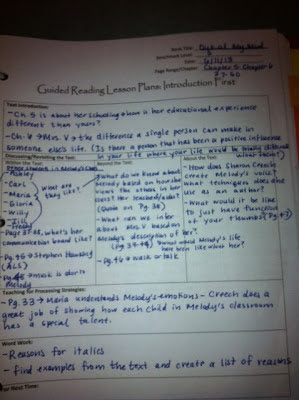 Book Title: Out of My Mind
Benchmark Level:
Date: 6/11/13
Page Range/Chapter: Chapter 5-Chapter 6
27-50
Guided Reading Lesson Plans: Introduction First
Text Introduction:
- Ch. 5 is about her schooling - how is her educational experience
different than yours?
- Ch. 6 → Mrs. V → the difference a single person can make in
someone else's life. (Is there a person that has been a positive influence
in your life where your life would be totally different
without them?)
Discussing/Revisiting the Text:
Within the Text:
Other students in Melody's class
- Ashley
- Carl
- Maria
- Gloria
- Willy
- Jill
- Freddy
What are they like?
Page 37-38, what's her
communication board like?
- Pg. 45 → Stephen Hawking
(ALS)
- music is due to
Melody
About the Text:
What do we know about
Melody based on how she
views the others in her
class? Her teachers/aides?
(Quote on Pg. 38)
- What can we infer
about Mrs. V based on
Melody's description of her?
(Pg. 39-44)
- What would Melody's life
have been like without her?
- Pg. 46 → walk or talk
About the Text:
- How does Sharon Creech
create Melody's voice?
What techniques does she
use as an author?
- What would it be like
to just have function
of your thumbs?
Teaching for Processing Strategies:
- Pg. 33 → Maria understands Melody's emotions - Creech does a
great job of showing how each child in Melody's classroom
has a special talent.
Word Work:
- Reasons for italics
- find examples from the text and create a list of reasons
For Next Time: